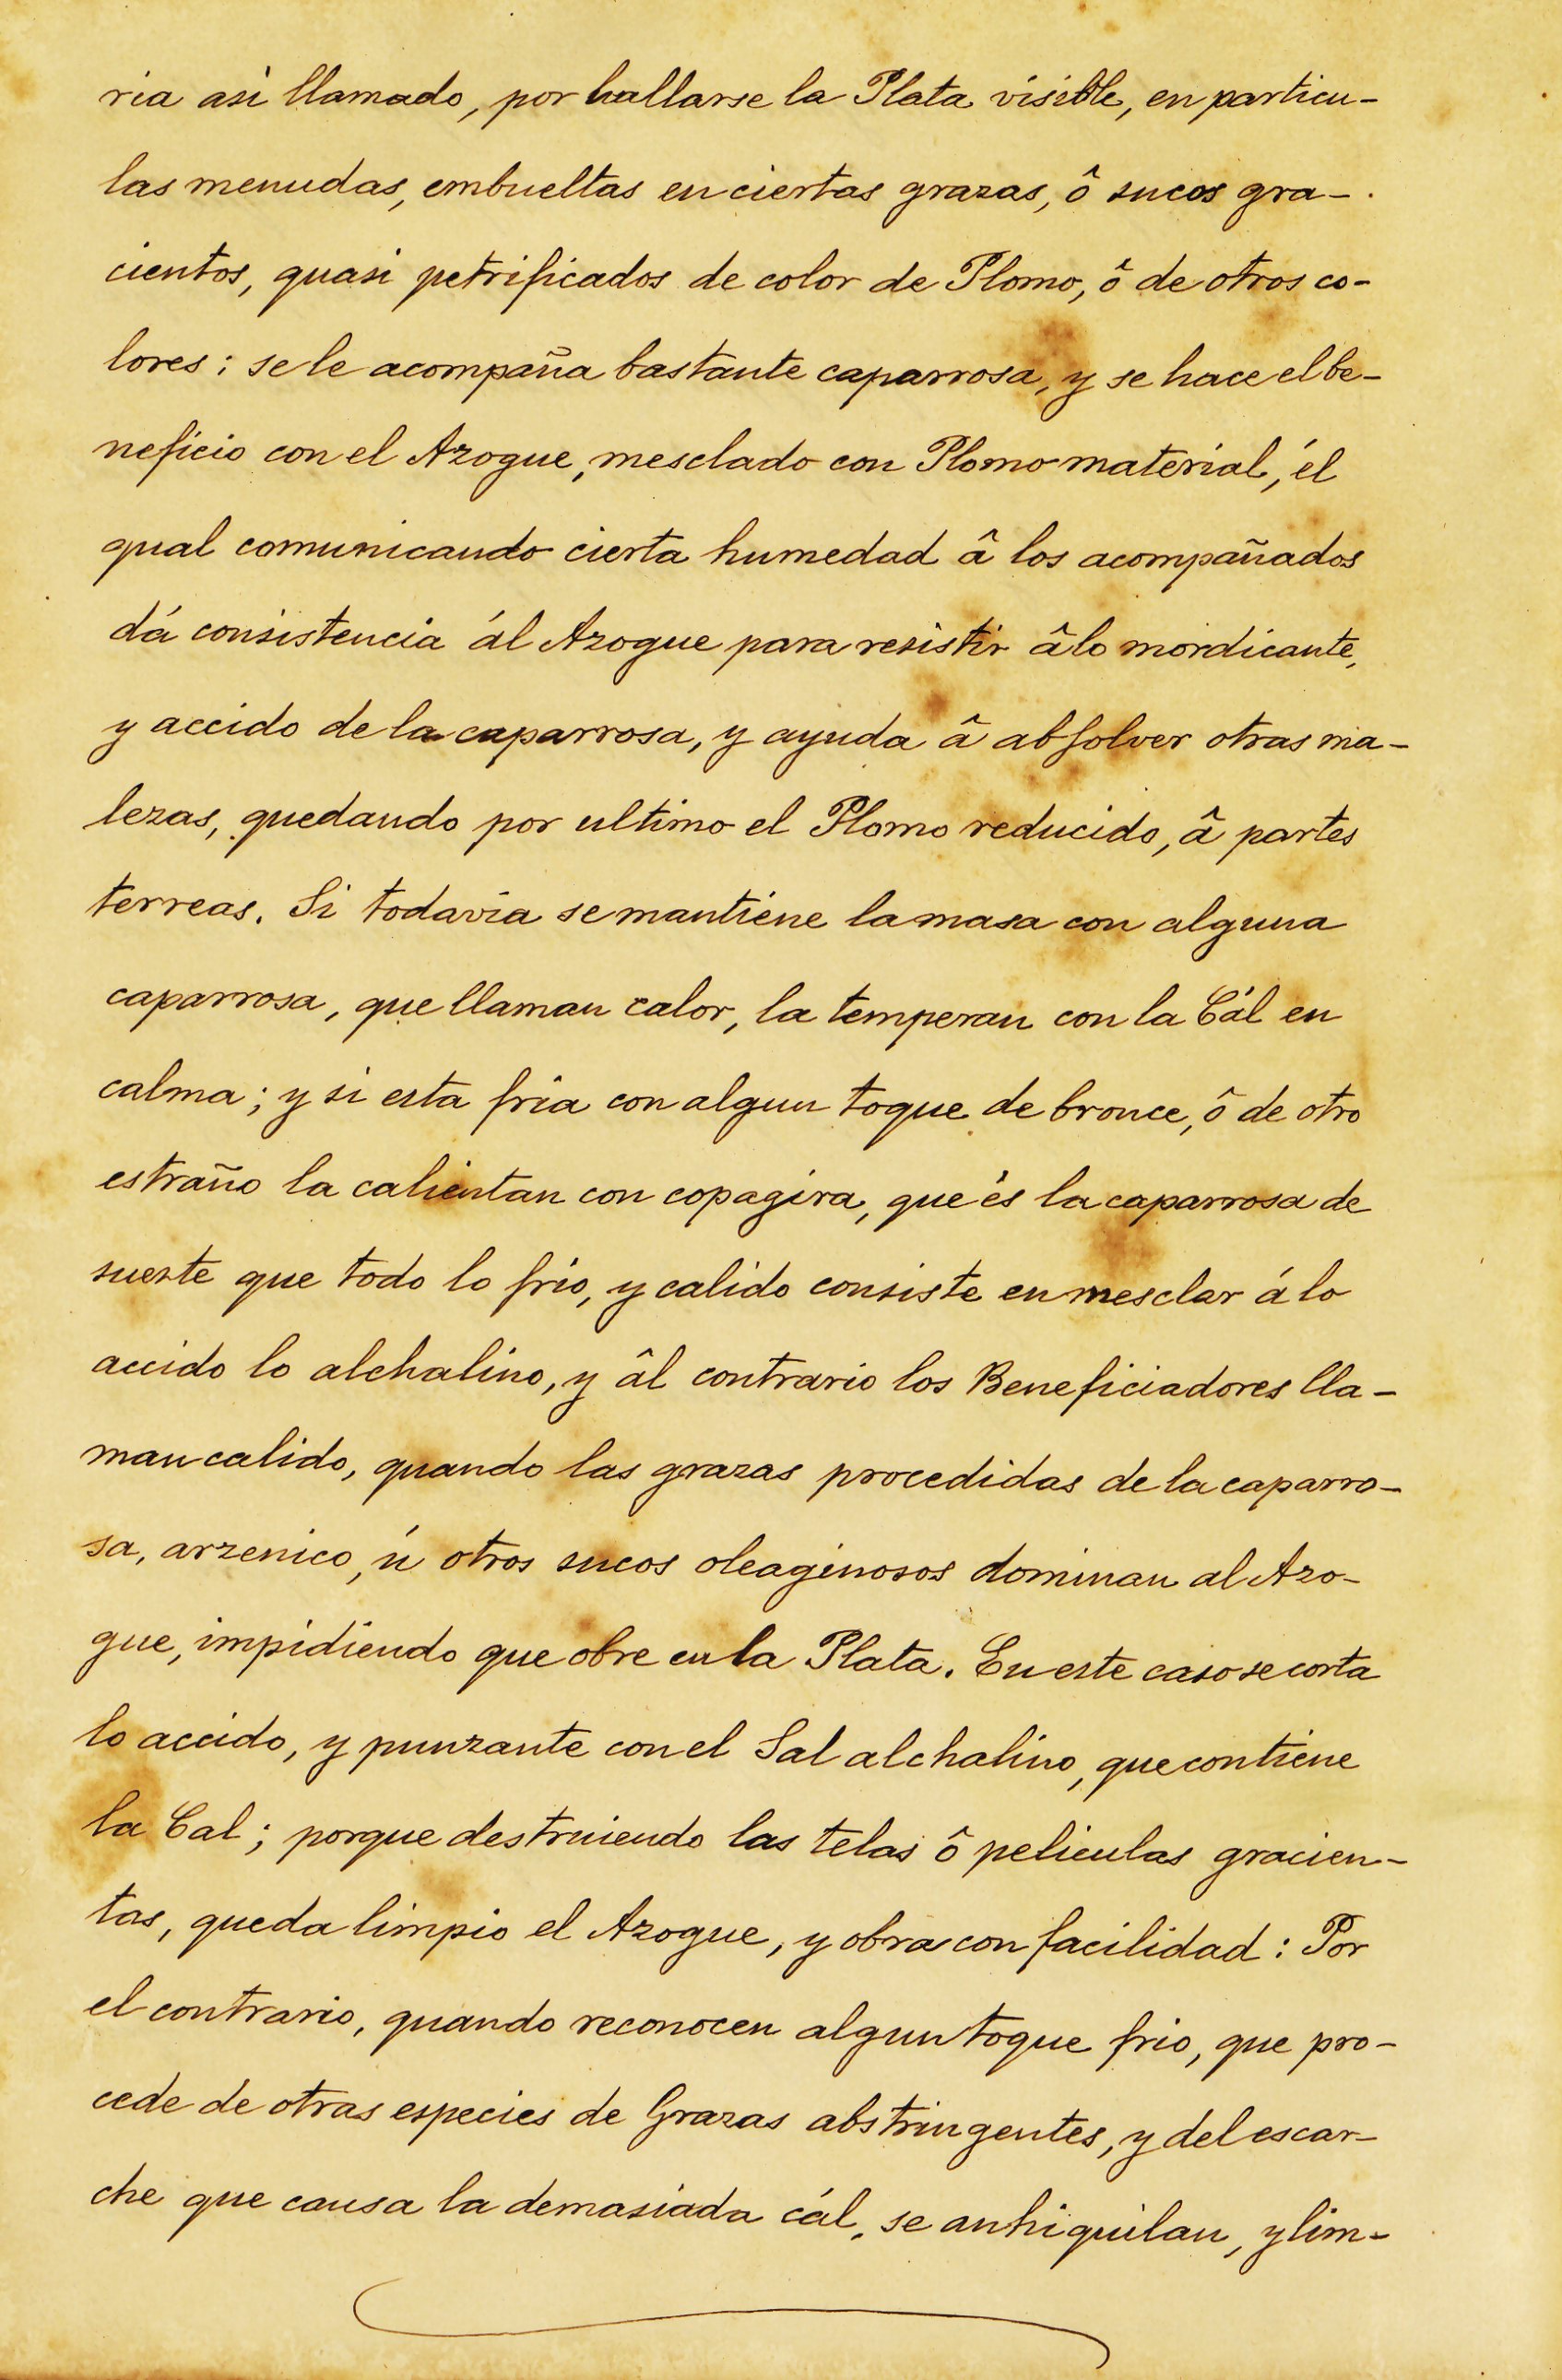 ria asi llamado, por hallarse la Plata visible, en particu-
las menudas, embueltas en ciertas grazas, ô sucos gra-
cientos, quasi petrificados de color de Plomo, ô de otros co-
lores: se le acompaña bastante caparrosa, y se hace el be-
neficio con el Azogue, mesclado con Plomo material, él
qual comunicando cierta humedad â los acompañados
dá consistencia ál Azogue para resistir â lo mordicante,
y accido de la caparrosa, y ayuda â absolver otras ma-
lezas, quedando por ultimo el Plomo reducido, â partes
terreas. Si todavia se mantiene la masa con alguna
caparrosa, que llaman calor, la temperan con la Cál en
calma; y si esta fria con algun toque de bronce, ô de otro
estraño la calientan con copagira, que és la caparrosa de
suerte que todo lo frio, y calido consiste en mesclar á lo
accido lo alchalino, y âl contrario los Beneficiadores lla-
man calido, quando las grazas procedidas de la caparro-
sa, arzenico, ú otros sucos oleaginosos dominan al Azo-
gue, impidiendo que obre en la Plata. En este caso se corta
lo accido, y punzante con el Sal alchalino, que contiene
la Cal; porque destruiendo las telas ô peliculas gracien-
tas, queda limpio el Azogue, y obra con facilidad: Por
el contrario, quando reconocen algun toque frio, que pro-
cede de otras especies de Grazas abstringentes, y del escar-
che que causa la demasiada cál, se anhiquilan, y lim-